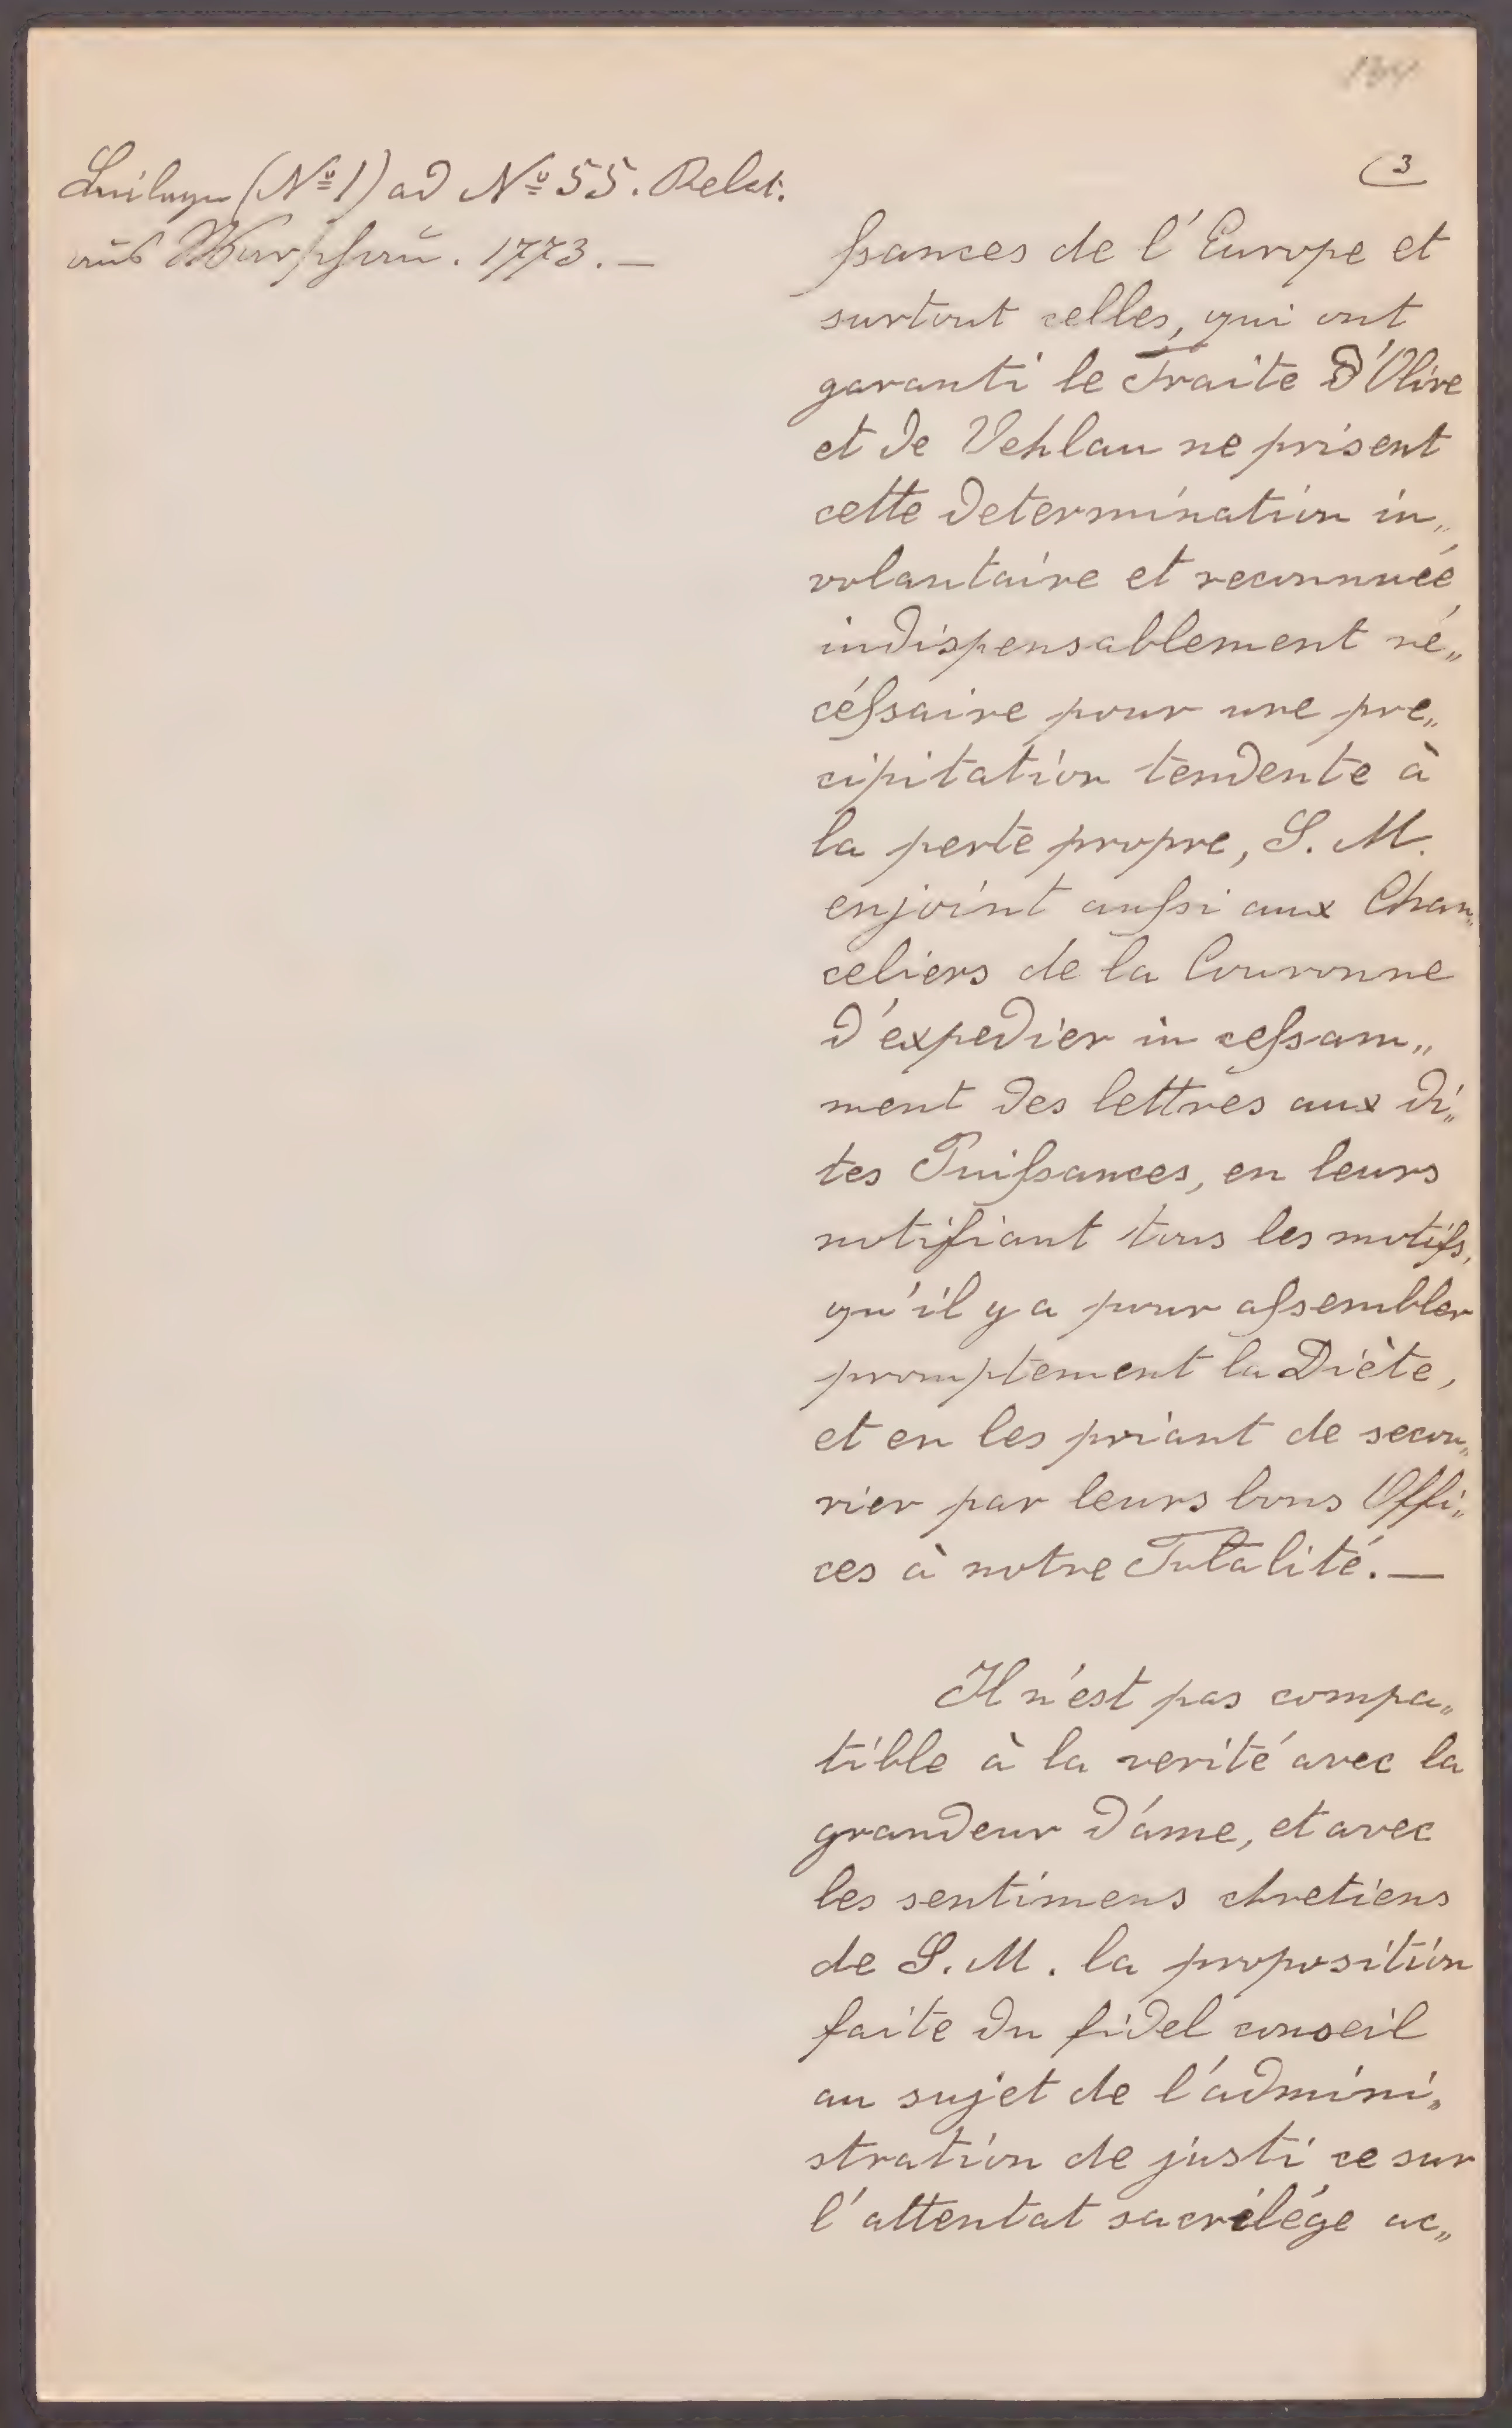 3
Beilage (No 1) ad No 55. Relat.
aus Warschau. 1773. —
ssances de l'Europe et
surtout celles, qui ont
garanti le Traite d'Olive
et de Vehlau ne prisent
cette determination in„
volantaire et reconnuéé
indispensablement né„
céssaire pour une pre„
cipitation tendente à
la perte propre, S. M.
enjoint aussi aux Chan„
celiers de la Couronne
d'expedier in cessam„
ment des lettres aux di„
tes Puissances, en leurs
notifiant tous les motifs,
qu'il y a pour assembler
promptement la Diète,
et en les priant de secou„
rier par leurs bons Offi„
ces à notre Totalité. —
Il n'est pas compa„
tible à la verité avec la
grandeur d'áme, et avec
les sentimens chretiens
de S. M. la proposition
faite du fidel conseil
au sujet de l'admini„
stration de justi ce sur
l'attentat sacrélége ac„